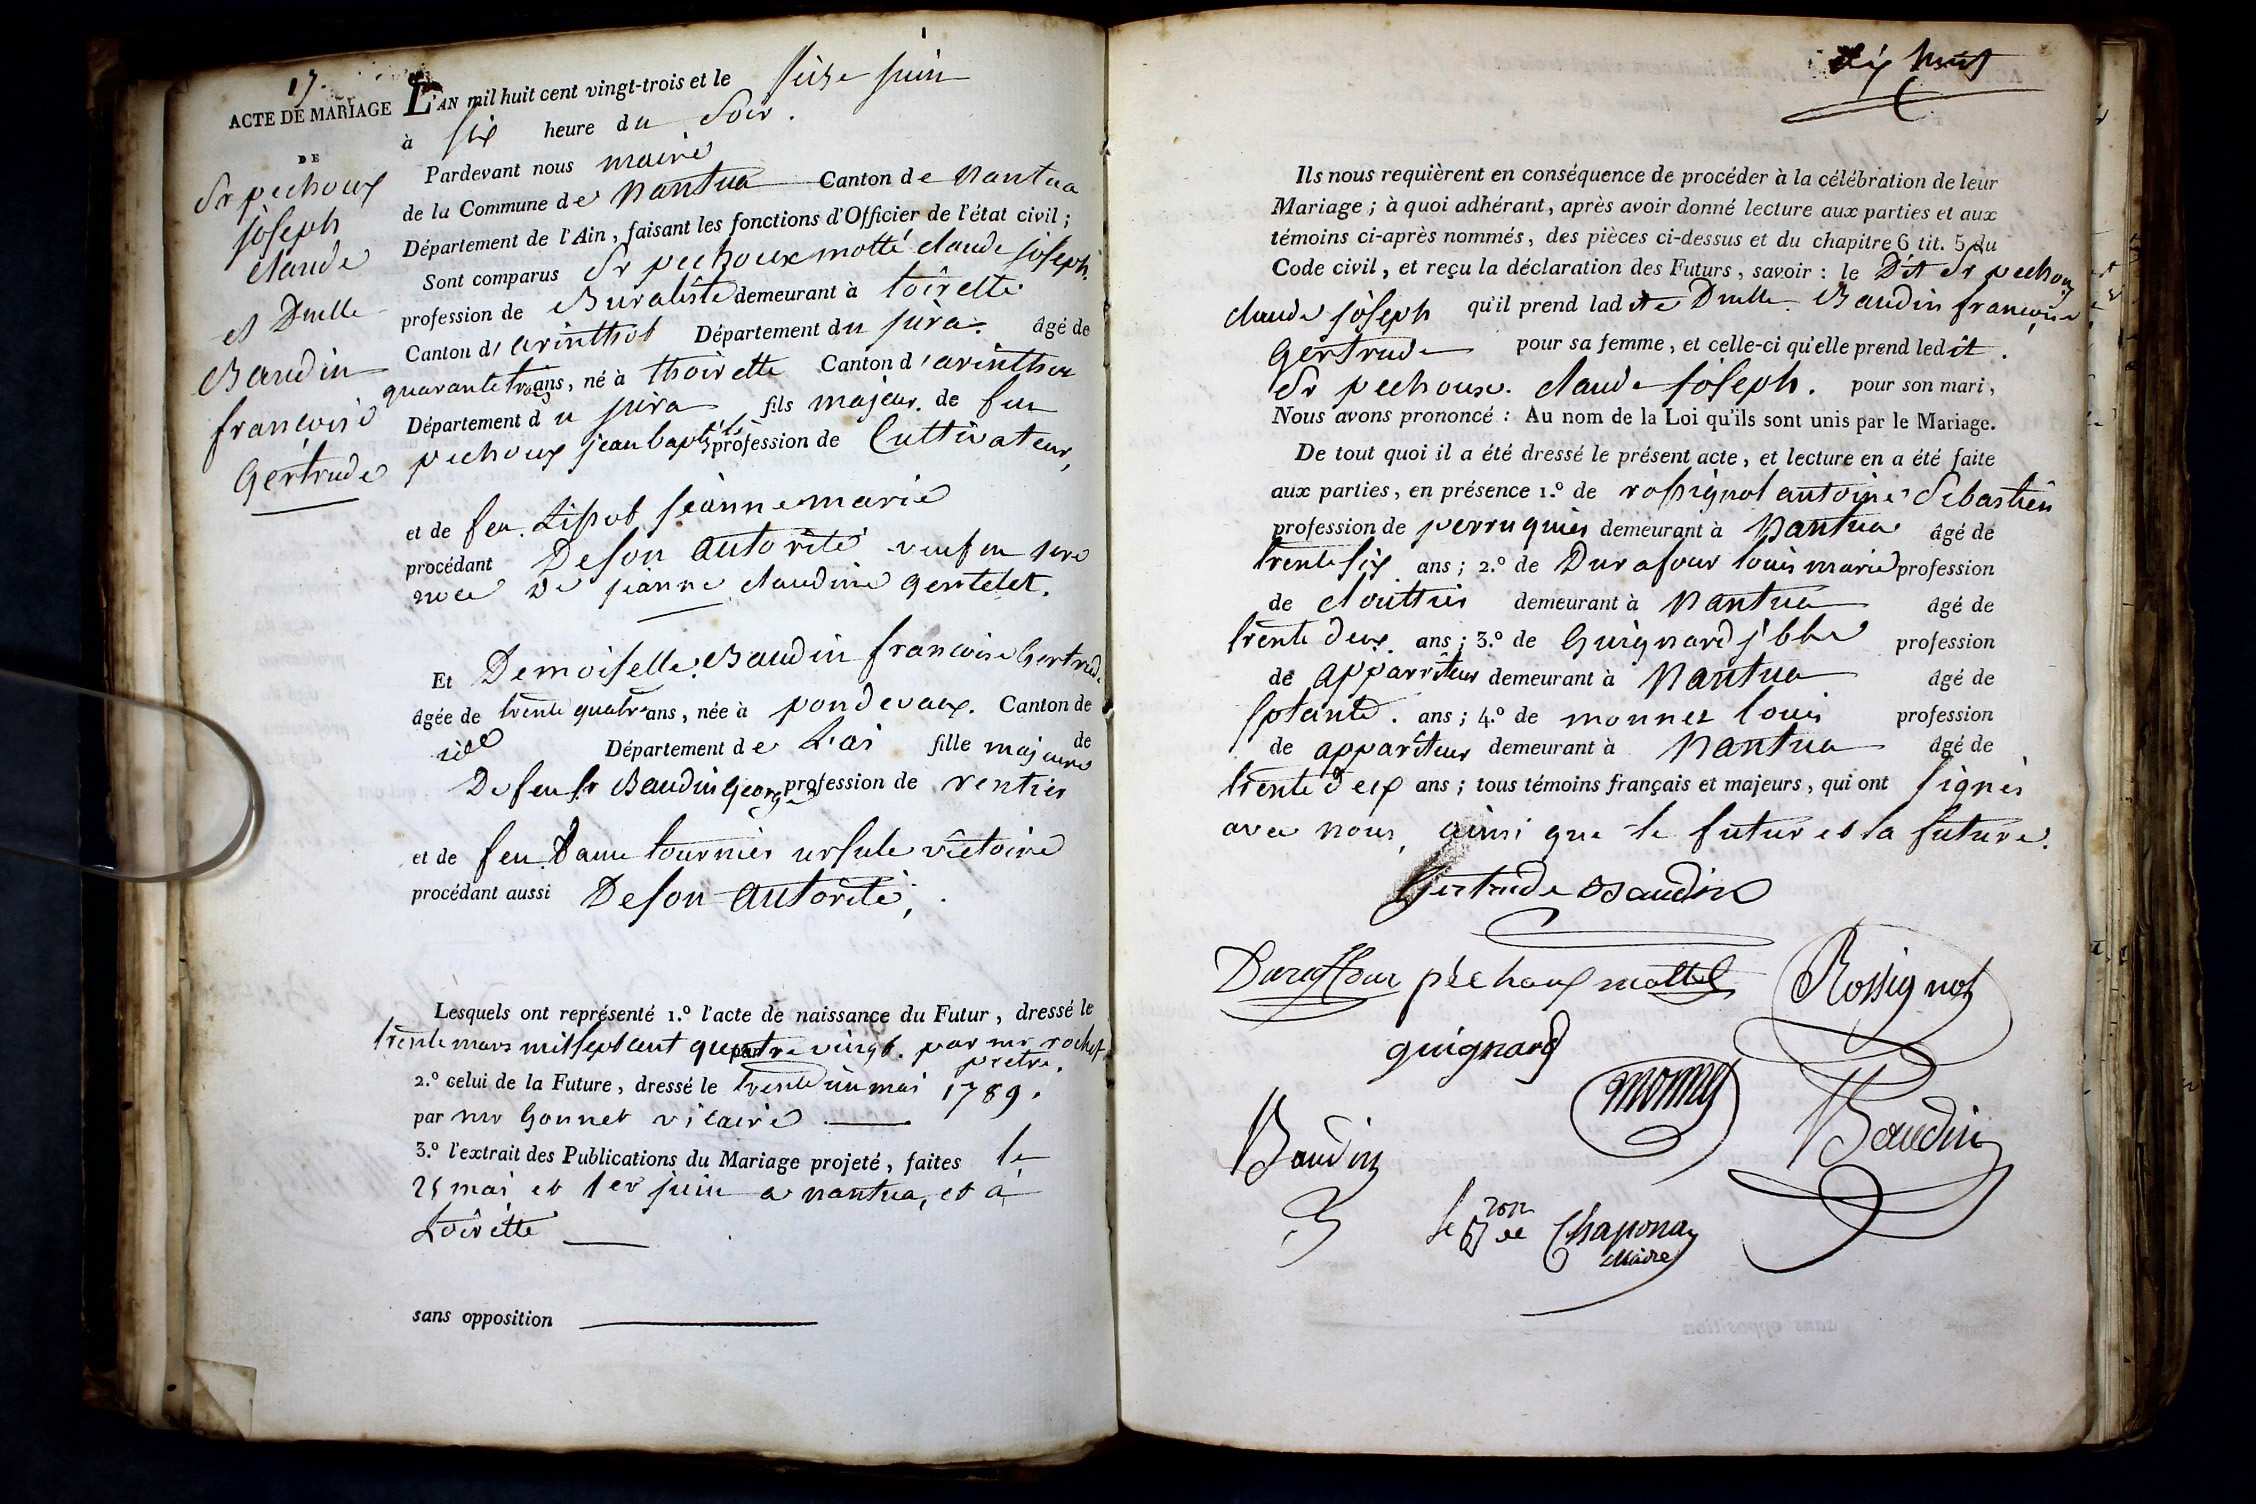 17.
ACTE DE MARIAGE
DE
Sr pechoux
joseph
claude
et Dmelle
Baudin
francoise
Gertrude
L'AN mil huit cent vingt-trois et le seize juin
à six heure du Soir.
Pardevant nous maire
de la Commune de Nantua Canton de Nantua
Département de l'Ain, faisant les fonctions d'Officier de l'état civil;
Sont comparus Sr pechoux motté claude joseph.
profession de Buraliste demeurant à toirette
Canton d'arinthot Département du jura. âgé de
quarante trois ans, né à thoirette Canton d'arinthou
Département du jura fils majeur. de feu
pechoux jean baptiste profession de Cultivateur,
et de feu. Lissot jeanne marie
procédant De son autorité veuf en
noce De jeanne claudine gentelet.
Et Demoiselle. Baudin francoise Gertrude
âgée de trente quatre ans, née à pondevaux. Canton de
id Département de L'ai fille majeure de
De feu Sr Baudin George profession de rentier
et de feu. Dame tournier ursule victoire
procédant aussi De son autorité,
Lesquels ont représenté 1.º l'acte de naissance du Futur, dressé le
trente mars mil sept cent quatre vingt. par mr rochet
par
pretre.
2.º celui de la Future, dressé le trente un mai 1789.
par mr Gonnet vicaire
3.º l'extrait des Publications du Mariage projeté, faites le
25 mai et 1er juin a nantua, et à
toirette
sans opposition
dix huit
Ils nous requièrent en conséquence de procéder à la célébration de leur
Mariage; à quoi adhérant, après avoir donné lecture aux parties et aux
témoins ci-après nommés, des pièces ci-dessus et du chapitre 6 tit. 5 du
Code civil, et reçu la déclaration des Futurs, savoir: le Dit Sr pechoux
claude joseph qu'il prend ladite Dmelle Baudin francoise
Gertrude pour sa femme, et celle-ci qu'elle prend ledit.
Sr pechoux. claude joseph. pour son mari,
Nous avons prononcé: Au nom de la Loi qu'ils sont unis par le Mariage.
De tout quoi il a été dressé le présent acte, et lecture en a été faite
aux parties, en présence 1.º de rossignol antoine Sebastien
profession de perruquier demeurant à Nantua âgé de
trente six ans; 2.º de Durafour louis marie profession
de cloutier demeurant à Nantua âgé de
trente deux. ans; 3.º de Guignard j bte profession
de apparriteur demeurant à Nantua âgé de
sptante. ans; 4.º de monnet louis profession
de appariteur demeurant à Nantua âgé de
trente deux ans; tous témoins français et majeurs, qui ont signés
avec nous, ainsi que le futur et la future.
Gertrude Baudin
Duraffour péchoux mottet Rossignol
guignard
monnet
Baudin Baudin
le Bon de Chaponay
Maire
sans opposition